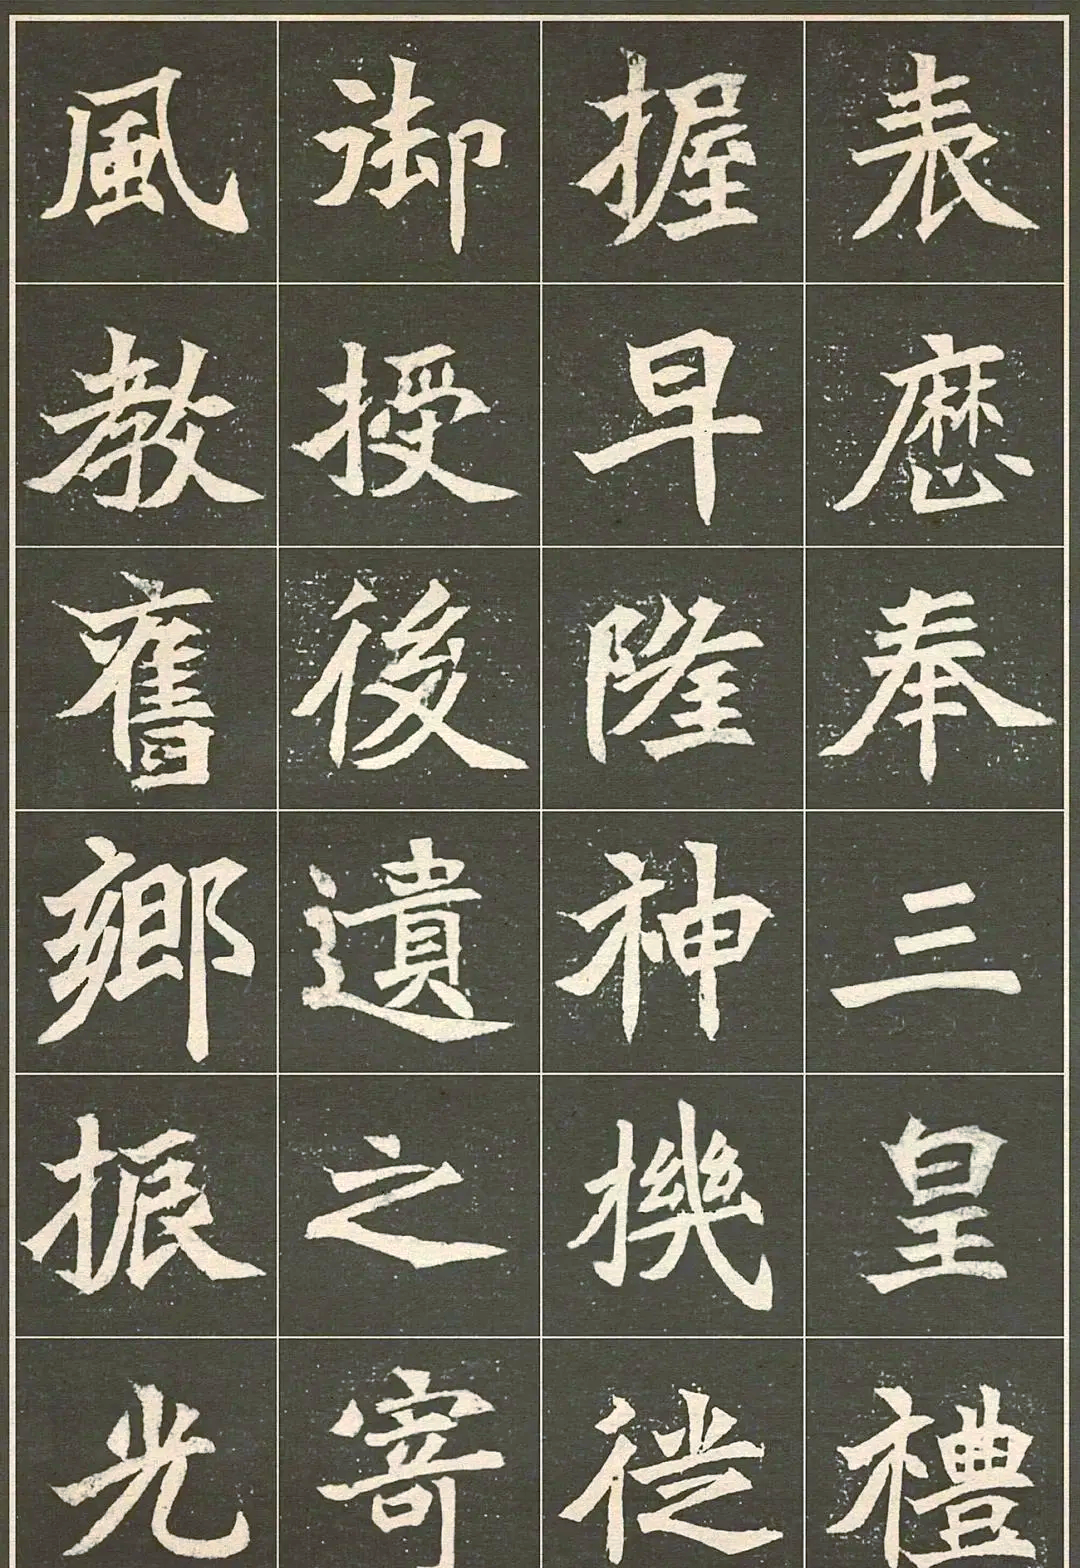 表歷奉三皇禮
握早隆神機徙
御授後遺之寄
風教舊鄉振光